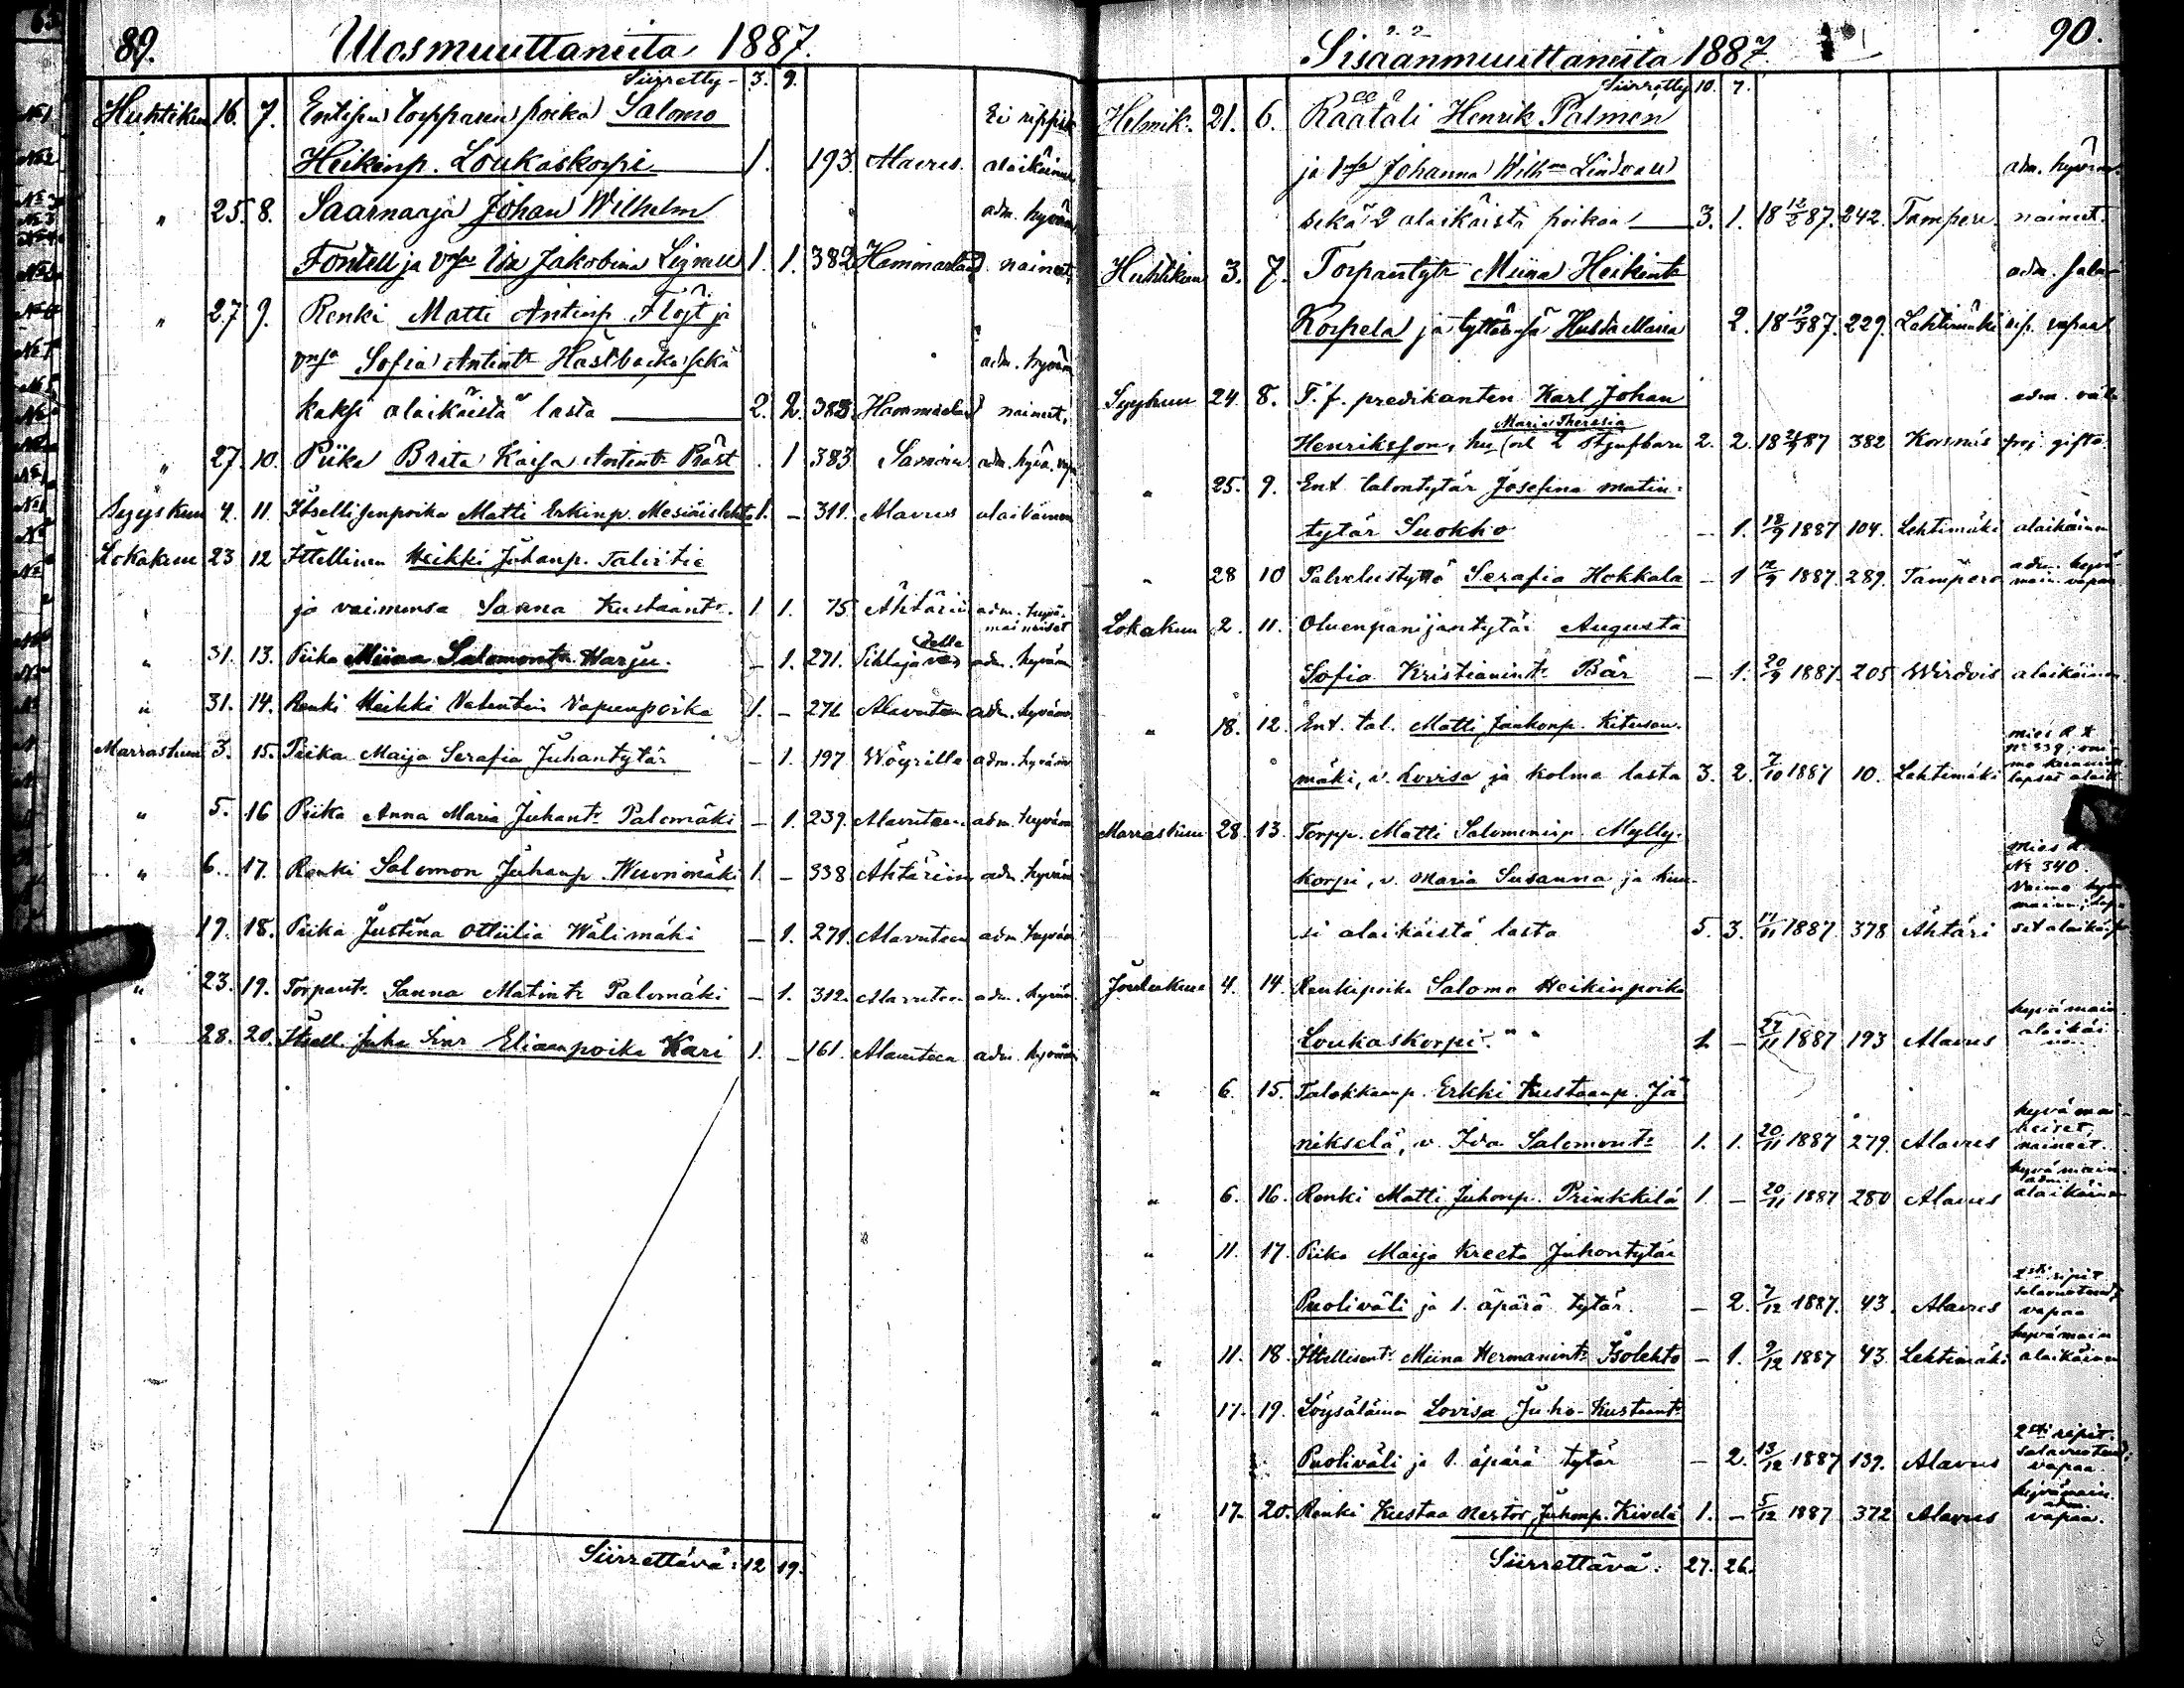 89. Ulosmuuttaneita 1887.
Siirretty 3. 9.
Huhtikuu 16. 7. Entisen torpparin poika Salomo Ei rippik.
Heikinp. Loukaskorpi 1. 193. Alavus. alaikäinen
" 25. 8. Saarnaaja Johan Wilhelm adm. hyväm.
Fontell ja vmsa Ida Jakobina Lignell 1. 1. 382 Hammarland naineet.
" 27. 9. Renki Matti Antinp. Flöjt ja
vmsa Sofia Antintr Hästbacka sekä adm. hyväm
kaksi alaikäistä lasta 2. 2. 383 Hammarland naineet.
" 27. 10. Piika Brita Kaisa Antintr Präst 1 383
Syyskuu 4. 11. Itsellisenpoika Matti Erkinp. Mesiäislehto 1. – 311. Alavus alaikäinen
Lokakuu 23 12 Itsellinen Heikki Juhanp. Talvitie
ja vaimonsa Sanna Kustaantr. 1. 1. 75 Ähtäriin adm. hyvä-
maineiset
" 31. 13. Piika Miina Salomontr Harju. – 1. 271. adm. hyväm
" 31. 14. Renki Heikki Valentin Vapunpoika 1. – 271 Alavuteen adm. hyväm
Marraskuu 3. 15. Piika Maija Serafia Juhantytär – 1. 197 Wöyrille adm. hyväm
" 5. 16 Piika Anna Maria Juhantr Palomäki – 1. 239. Alavuteen adm. hyväm
" 6. 17. Renki Salomon Juhanp. Wuorimäki 1. – 338 Ähtäriin adm. hyväm
19. 18. Piika Justina Ottiilia Wälimäki – 1. 271. Alavuteen adm. hyväm
" 23. 19. Torpantr. Sanna Matintr Palomäki – 1. 312. Alavuteen adm. hyväm.
" 28. 20. Itsell. Juha Eliaanpoika Kari 1. – 161. Alavuteen adm. hyväm
Siirrettävä: 12 19.
Sisäänmuuttaneita 1887. 90.
Siirretty 10. 7.
Helmik. 21. 6. Räätäli Henrik Palmén
ja vmsa Johanna Wilhma Lindroos adm. hyväm.
sekä 2 alaikäistä poikaa 3. 1. 18 12/2 87. 242. Tampere. naineet.
Huhtikuu 3. 7. Torpantytr Miina Heikintr adm.
Korpela ja tyttärensä Hulda Maria 2. 18 12/3 87. 229. Lehtimäki vapaa
Syyskuu 24. 8. T. f. predikanten Karl Johan adm.
Maria Theresia
Henriksson, hu och 2 styufbarn 2. 2. 18 2/9 87 382 Korsnäs gifta.
" 25. 9. Ent. talontytär Josefina matin-
tytär Suokko – 1. 18/9 1887 104. Lehtimäki alaikäinen
" 28 10 Palvelustyttö Serafia Hokkala – 1 12/9 1887. 289. Tampere adm. hyvä
main. vapaa
Lokakuu 2. 11. Oluenpanijantytär Augusta
Sofia Kristianintr Bär – 1. 20/9 1887. 205 Wirdois alaikäinen
" 18. 12. Ent. tal. Matti Jaakonp. Kitusen- mies R. K.
No 339;
mäki, v. Lovisa ja kolma lasta 3. 2. 7/10 1887 10. Lehtimäki
lapset alaik.
Marraskuu 28. 13. Torpp. Matti Salomoninp. Mylly-
mies
korpi, v. Maria Susanna ja kuu- No 340.
Vaimo hyvä
si alaikäistä lasta 5. 3. 17/11 1887. 378 Ähtäri
Joulukuu 4. 14. Renkipoika Salomo Heikinpoika hyvämain.
Loukaskorpi. " " 1. – 27/11 1887 193 Alavus alaikäi-
nen
" 6. 15. Talokkaanp. Erkki Kustaanp. Jä- hyvä mai-
neiset
nikselä, v. Ida Salomontr 1. 1. 20/11 1887 279. Alavus naineet.
" 6. 16. Renki Matti Juhonp. Prinkkilä 1. – 20/11 1887 280 Alavus hyvämain.
adm.
alaikäinen
" 11. 17. Piika Maija Kreeta Juhontytär
Puoliväli ja 1. äpärä tytär. – 2. 7/12 1887. 43. Alavus 2sti ripit.
salavuoteud.
vapaa
" 11. 18. Itsellisentr. Miina Hermanintr Isolehto – 1. 9/12 1887 43. Lehtimäki hyvämain
alaikäinen
" 17. 19. Löysäläinen Lovisa Juho-Kustaantr
Puoliväli ja 1. äpärä tytär – 2. 13/12 1887 139. Alavus 2sti ripit.
salavuoteud:
vapaa
" 17. 20. Renki Kustaa Nestor Juhonp. Kivelä 1. – 5/12 1887 372 Alavus hyvämain.
adm.
vapaa.
Siirrettävä: 27. 26.